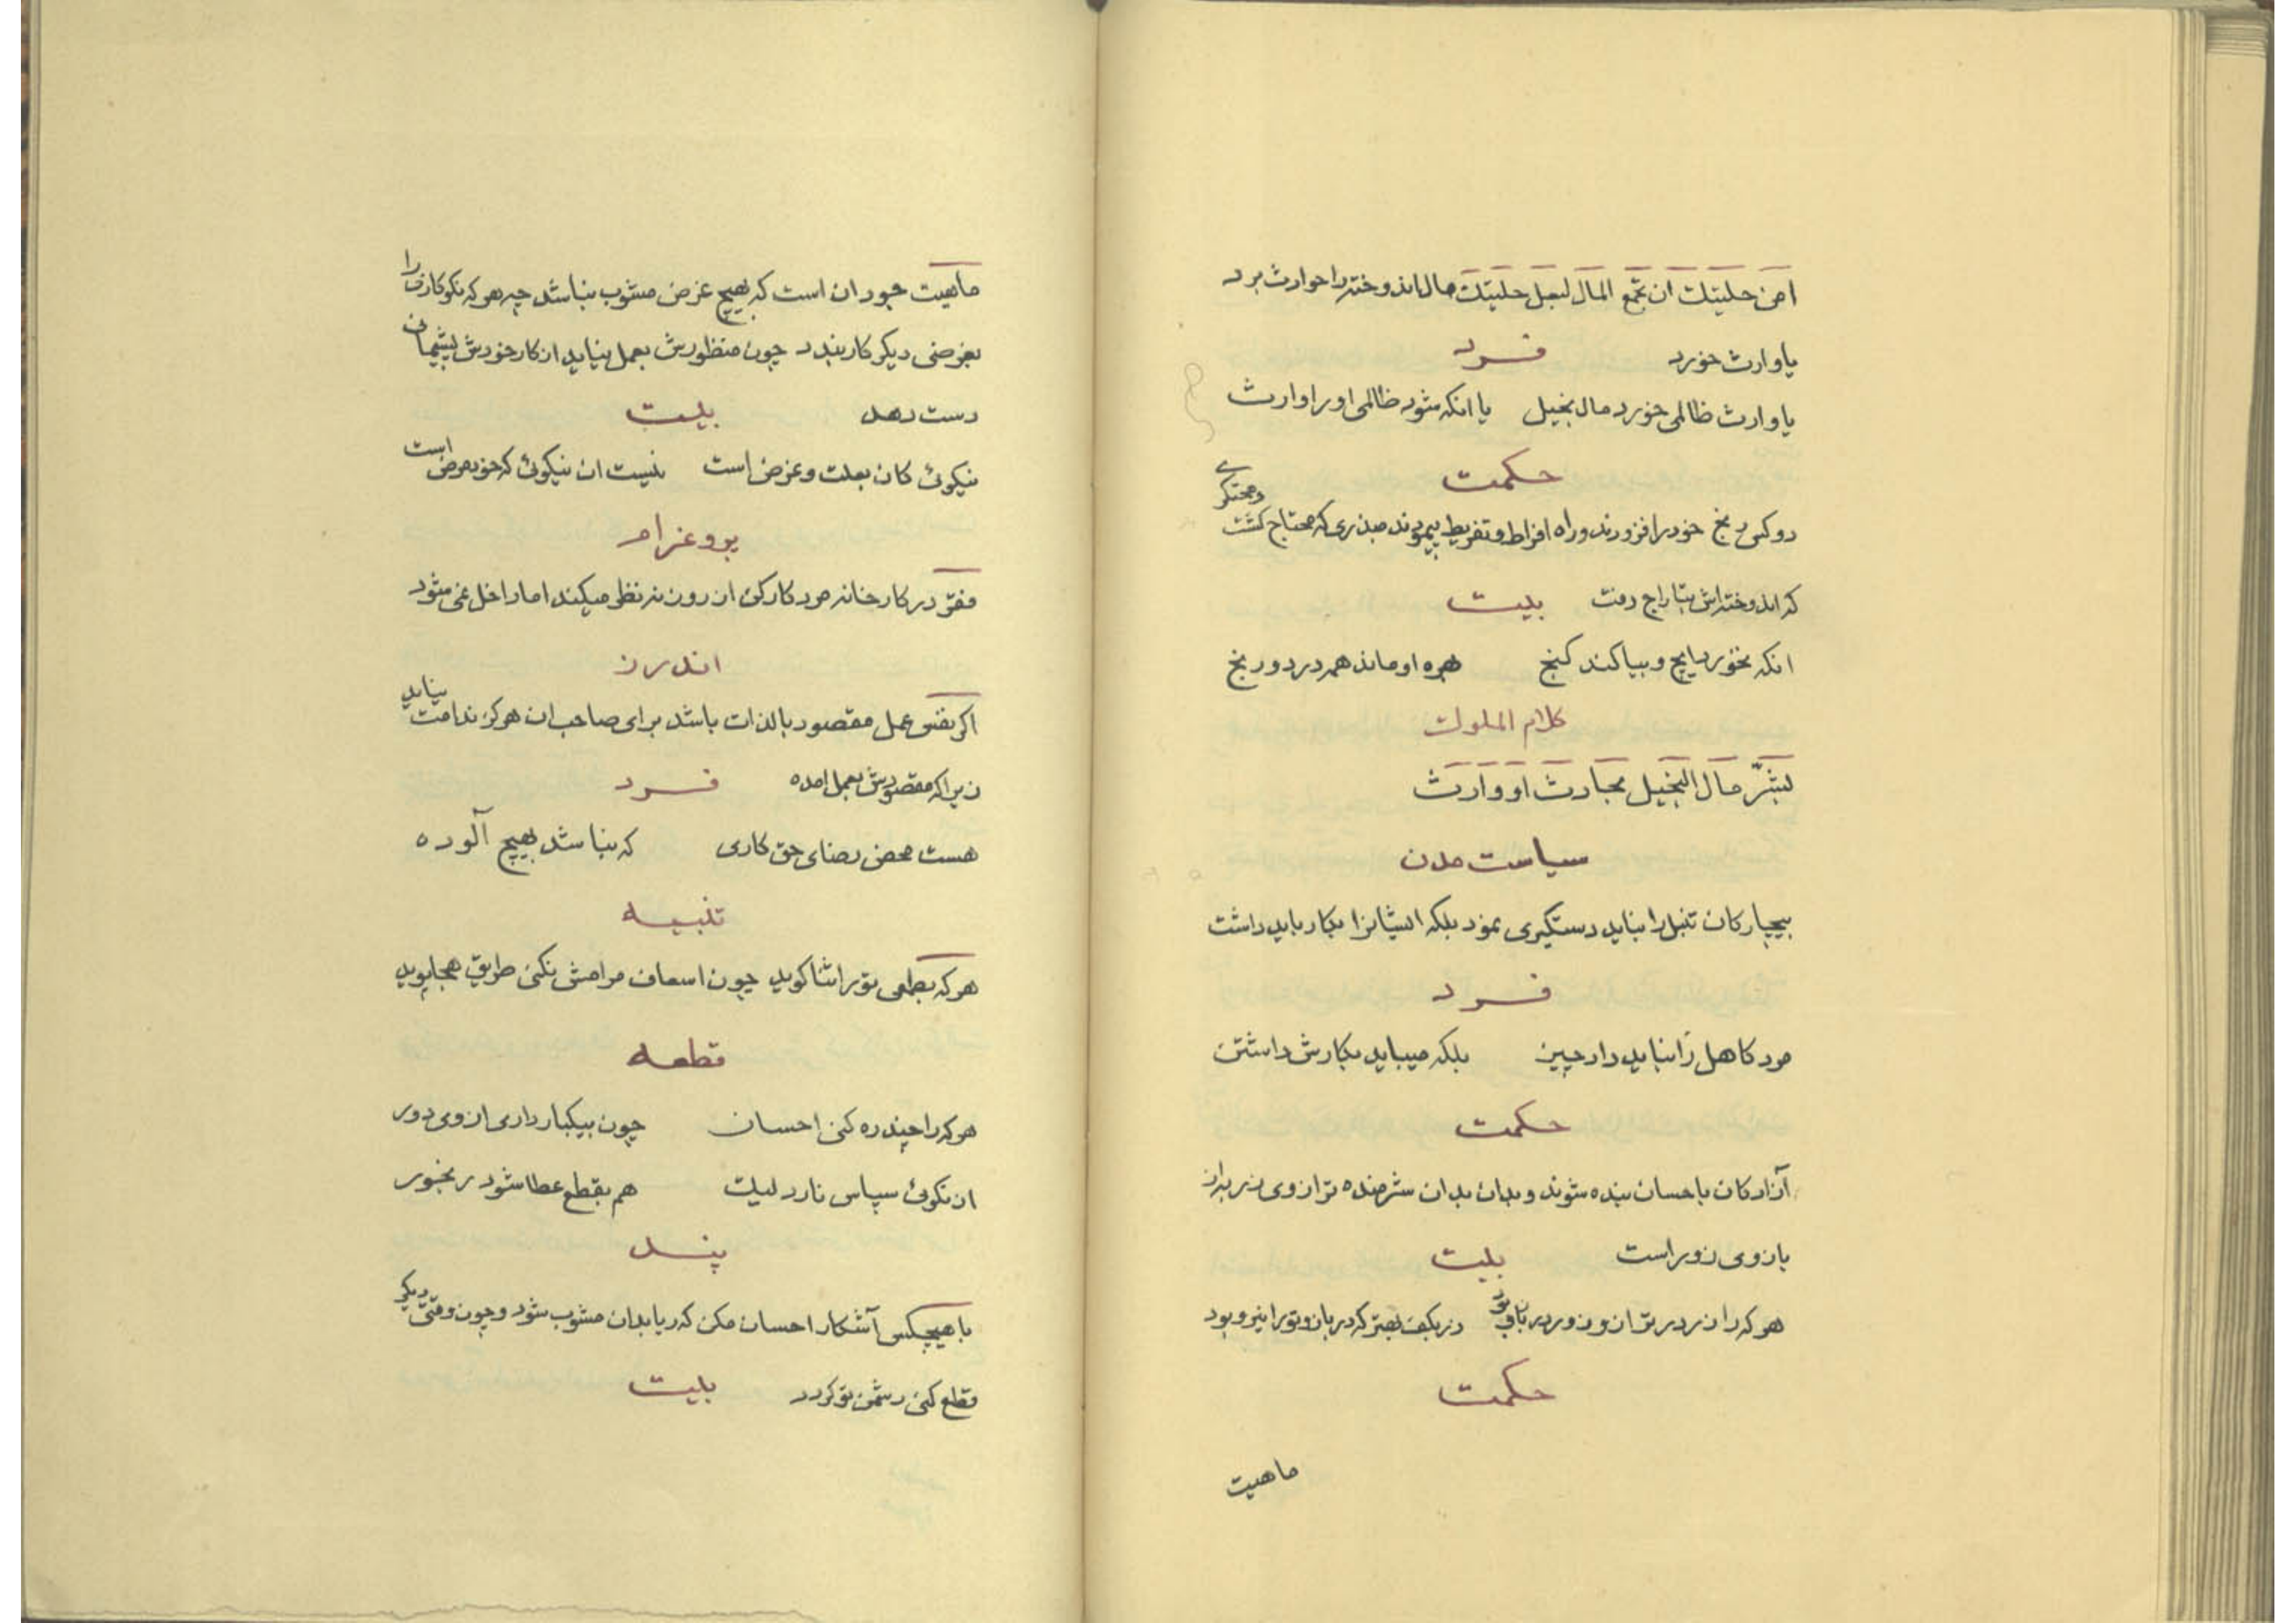 امن حليتك ان تجمع المال لبعل حليتك مال اندوخته را حوارث برد
یا وارث خورد
فرد
یا وارث ظالمی خورد مال بخیل یا انکه شود ظالمی او را وارث
حکمت
دو کس رنج خود را فزودند و راه افراط و تفریط پیمودند مبذری که محتاج کشت و محتکری
که اندوخته اش بتاراج رفت
بیت
انکه نخورد هیچ و بیاکند کنج بهره او ماند همه درد و رنج
کلام الملوک
بشر مال البخیل بحادث او وارث
سیاست مدن
بیچارکان تنبل را نباید دستکیری نمود بلکه ایشانرا بکار باید داشت
فرد
مرد کاهل را نباید داد چیز بلکه میباید بکارش داشتن
حکمت
آزادکان باحسان بنده شوند و بدان بدان شرمنده ترازوی زر به از
بازوی زور است
بیت
هرکه را زر در ترازو زور در بازو بود زر بکف بهتر که در بازو تو را نیرو بود
حکمت
ماهیت
ماهیت جود ان است که بهیچ غرض مشوب نباشد چه هرکه نکوکاری را
بغرضی دیکر کار بندد چون منظورش بعمل نیاید از کار خودش پشیمانی
دست دهد
بیت
نیکوئی کان بعلت و غرض است نیست ان نیکوئی که خود مرض است
پروغرام
مفتر در کارخانه مرد کارکن از روزنه نظر میکند اما داخل نمی شود
اندرز
اکر نفس عمل مقصود بالذات باشد برای صاحب ان هرکز ندامت نیاید
زیرا که مقصودش بعمل امده
فرد
هست محض رضای حق کاری که نباشد بهیچ آلوده
تنبیه
هرکه بطمعی تو را ثنا کوید چون اسعاف مرامش نکنی طریق هجا پوید
قطعه
هرکه را چند ره کنی احسان چون بیکبار داری از وی دور
از نکوئی سپاس نارد لیک هم بقطع عطا شود رنجور
پند
با هیچکس آشکارا احسان مکن که ریا بدان مشوب شود و چون وقتی دیکر
قطع کنی دشمن تو کردد
بیت